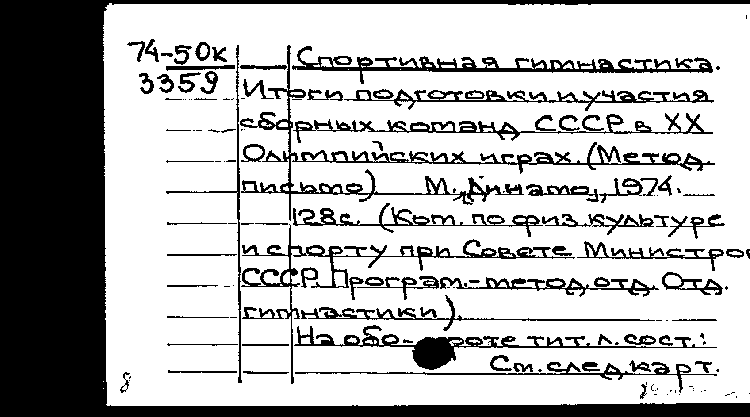 74-50к
3359
Спортивная гимнастика.
Итоги подготовки и участия
сборных команд СССР в XX
Олимпийских играх. (Метод.
письмо) М. „Динамо„, 1974.
128с. (Ком. по физ. культуре
и спорту при Совете Министров
СССР. Програм.-метод. отд. Отд.
гимнастики).
На обо- роте тит. л. сост.:
См. след. карт.
8